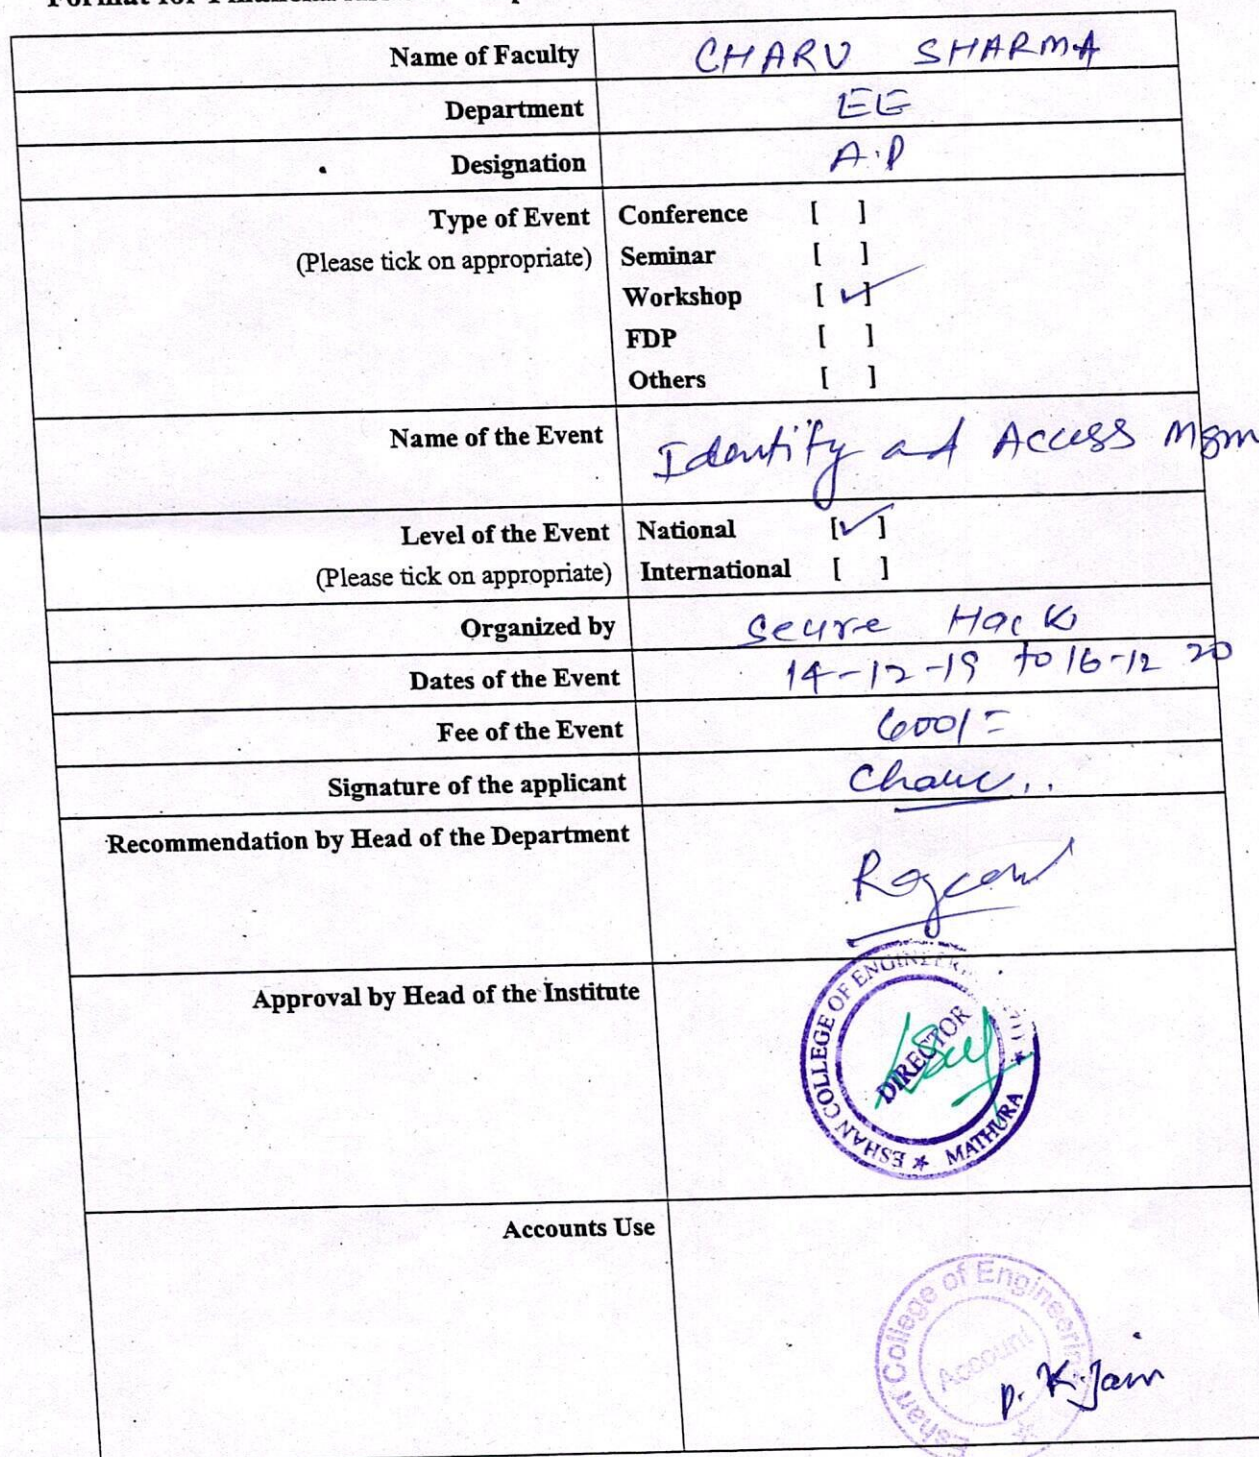 Name of Faculty CHARU SHARMA
Department EE
Designation A.P
Type of Event Conference [ ]
(Please tick on appropriate) Seminar [ ]
Workshop [✓]
FDP [ ]
Others [ ]
Name of the Event Identity and Access Mgm
Level of the Event National [✓]
(Please tick on appropriate) International [ ]
Organized by Secure Hack
Dates of the Event 14-12-19 to 16-12 20
Fee of the Event 600/=
Signature of the applicant Charu..
Recommendation by Head of the Department
Approval by Head of the Institute
ESHAN COLLEGE OF ENGINEERING
DIRECTOR
MATHURA
Accounts Use
Eshan College of Engineering
Account
P. K. Jain